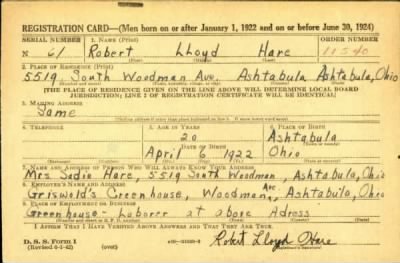 REGISTRATION CARD—(Men born on or after January 1, 1922 and on or before June 30, 1924)
SERIAL NUMBER 1. NAME (Print) ORDER NUMBER
N 61 Robert Lloyd Hare 11540
(First) (Middle) (Last)
2. PLACE OF RESIDENCE (Print)
5519 South Woodman Ave. Ashtabula Ashtabula, Ohio
[THE PLACE OF RESIDENCE GIVEN ON THE LINE ABOVE WILL DETERMINE LOCAL BOARD
JURISDICTION; LINE 2 OF REGISTRATION CERTIFICATE WILL BE IDENTICAL]
3. MAILING ADDRESS
Same
4. TELEPHONE 5. AGE IN YEARS 6. PLACE OF BIRTH
20 Ashtabula
DATE OF BIRTH
April 6 1922 Ohio
7. NAME AND ADDRESS OF PERSON WHO WILL ALWAYS KNOW YOUR ADDRESS
Mrs Sadie Hare, 5519 South Woodman, Ashtabula, Ohio
8. EMPLOYER'S NAME AND ADDRESS
Griswold's Greenhouse, Woodman Ave, Ashtabula, Ohio
9. PLACE OF EMPLOYMENT OR BUSINESS
Greenhouse - Laborer at above Adress
I AFFIRM THAT I HAVE VERIFIED ABOVE ANSWERS AND THAT THEY ARE TRUE.
D. S. S. Form 1
(Revised 6-9-42) (over) Robert Lloyd Hare